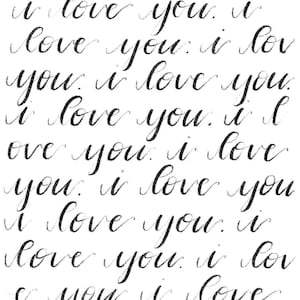 i love you. i
love you. i lov
you. i love you.
i love you. i l
ove you. i love
you. i love you
i love you. i
love you. i lov
e you. i love